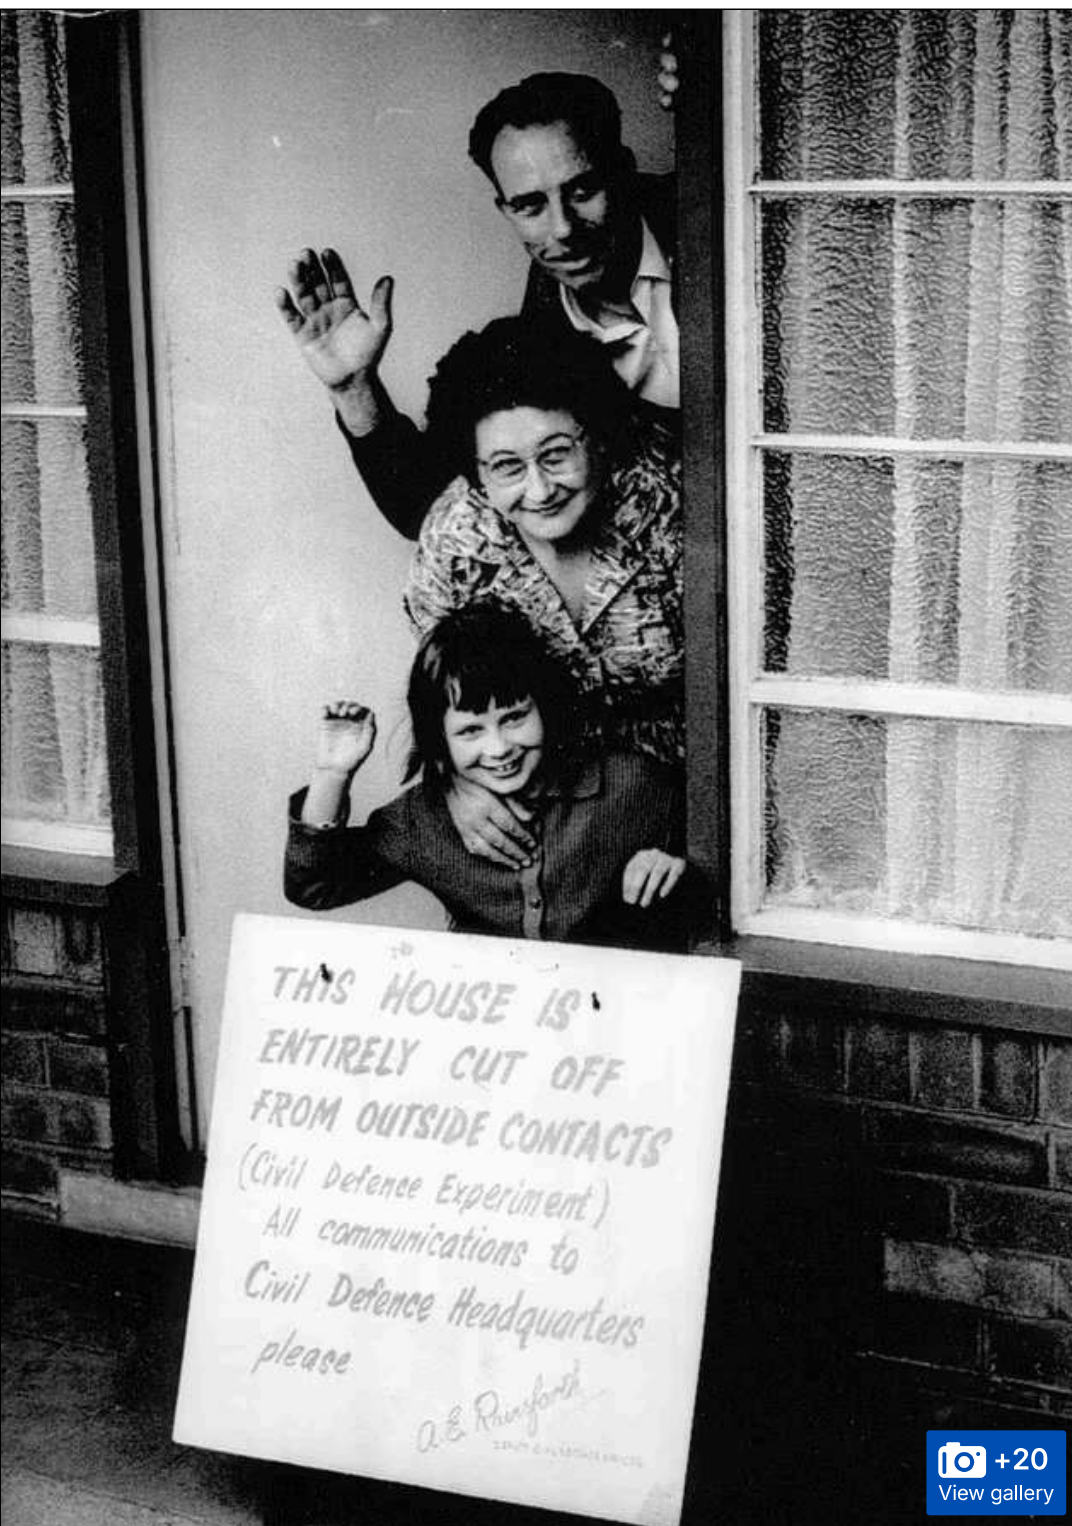 THIS HOUSE IS
ENTIRELY CUT OFF
FROM OUTSIDE CONTACTS
(Civil Defence Experiment)
All communications to
Civil Defence Headquarters
please
A E Rainsforth
+20
View gallery